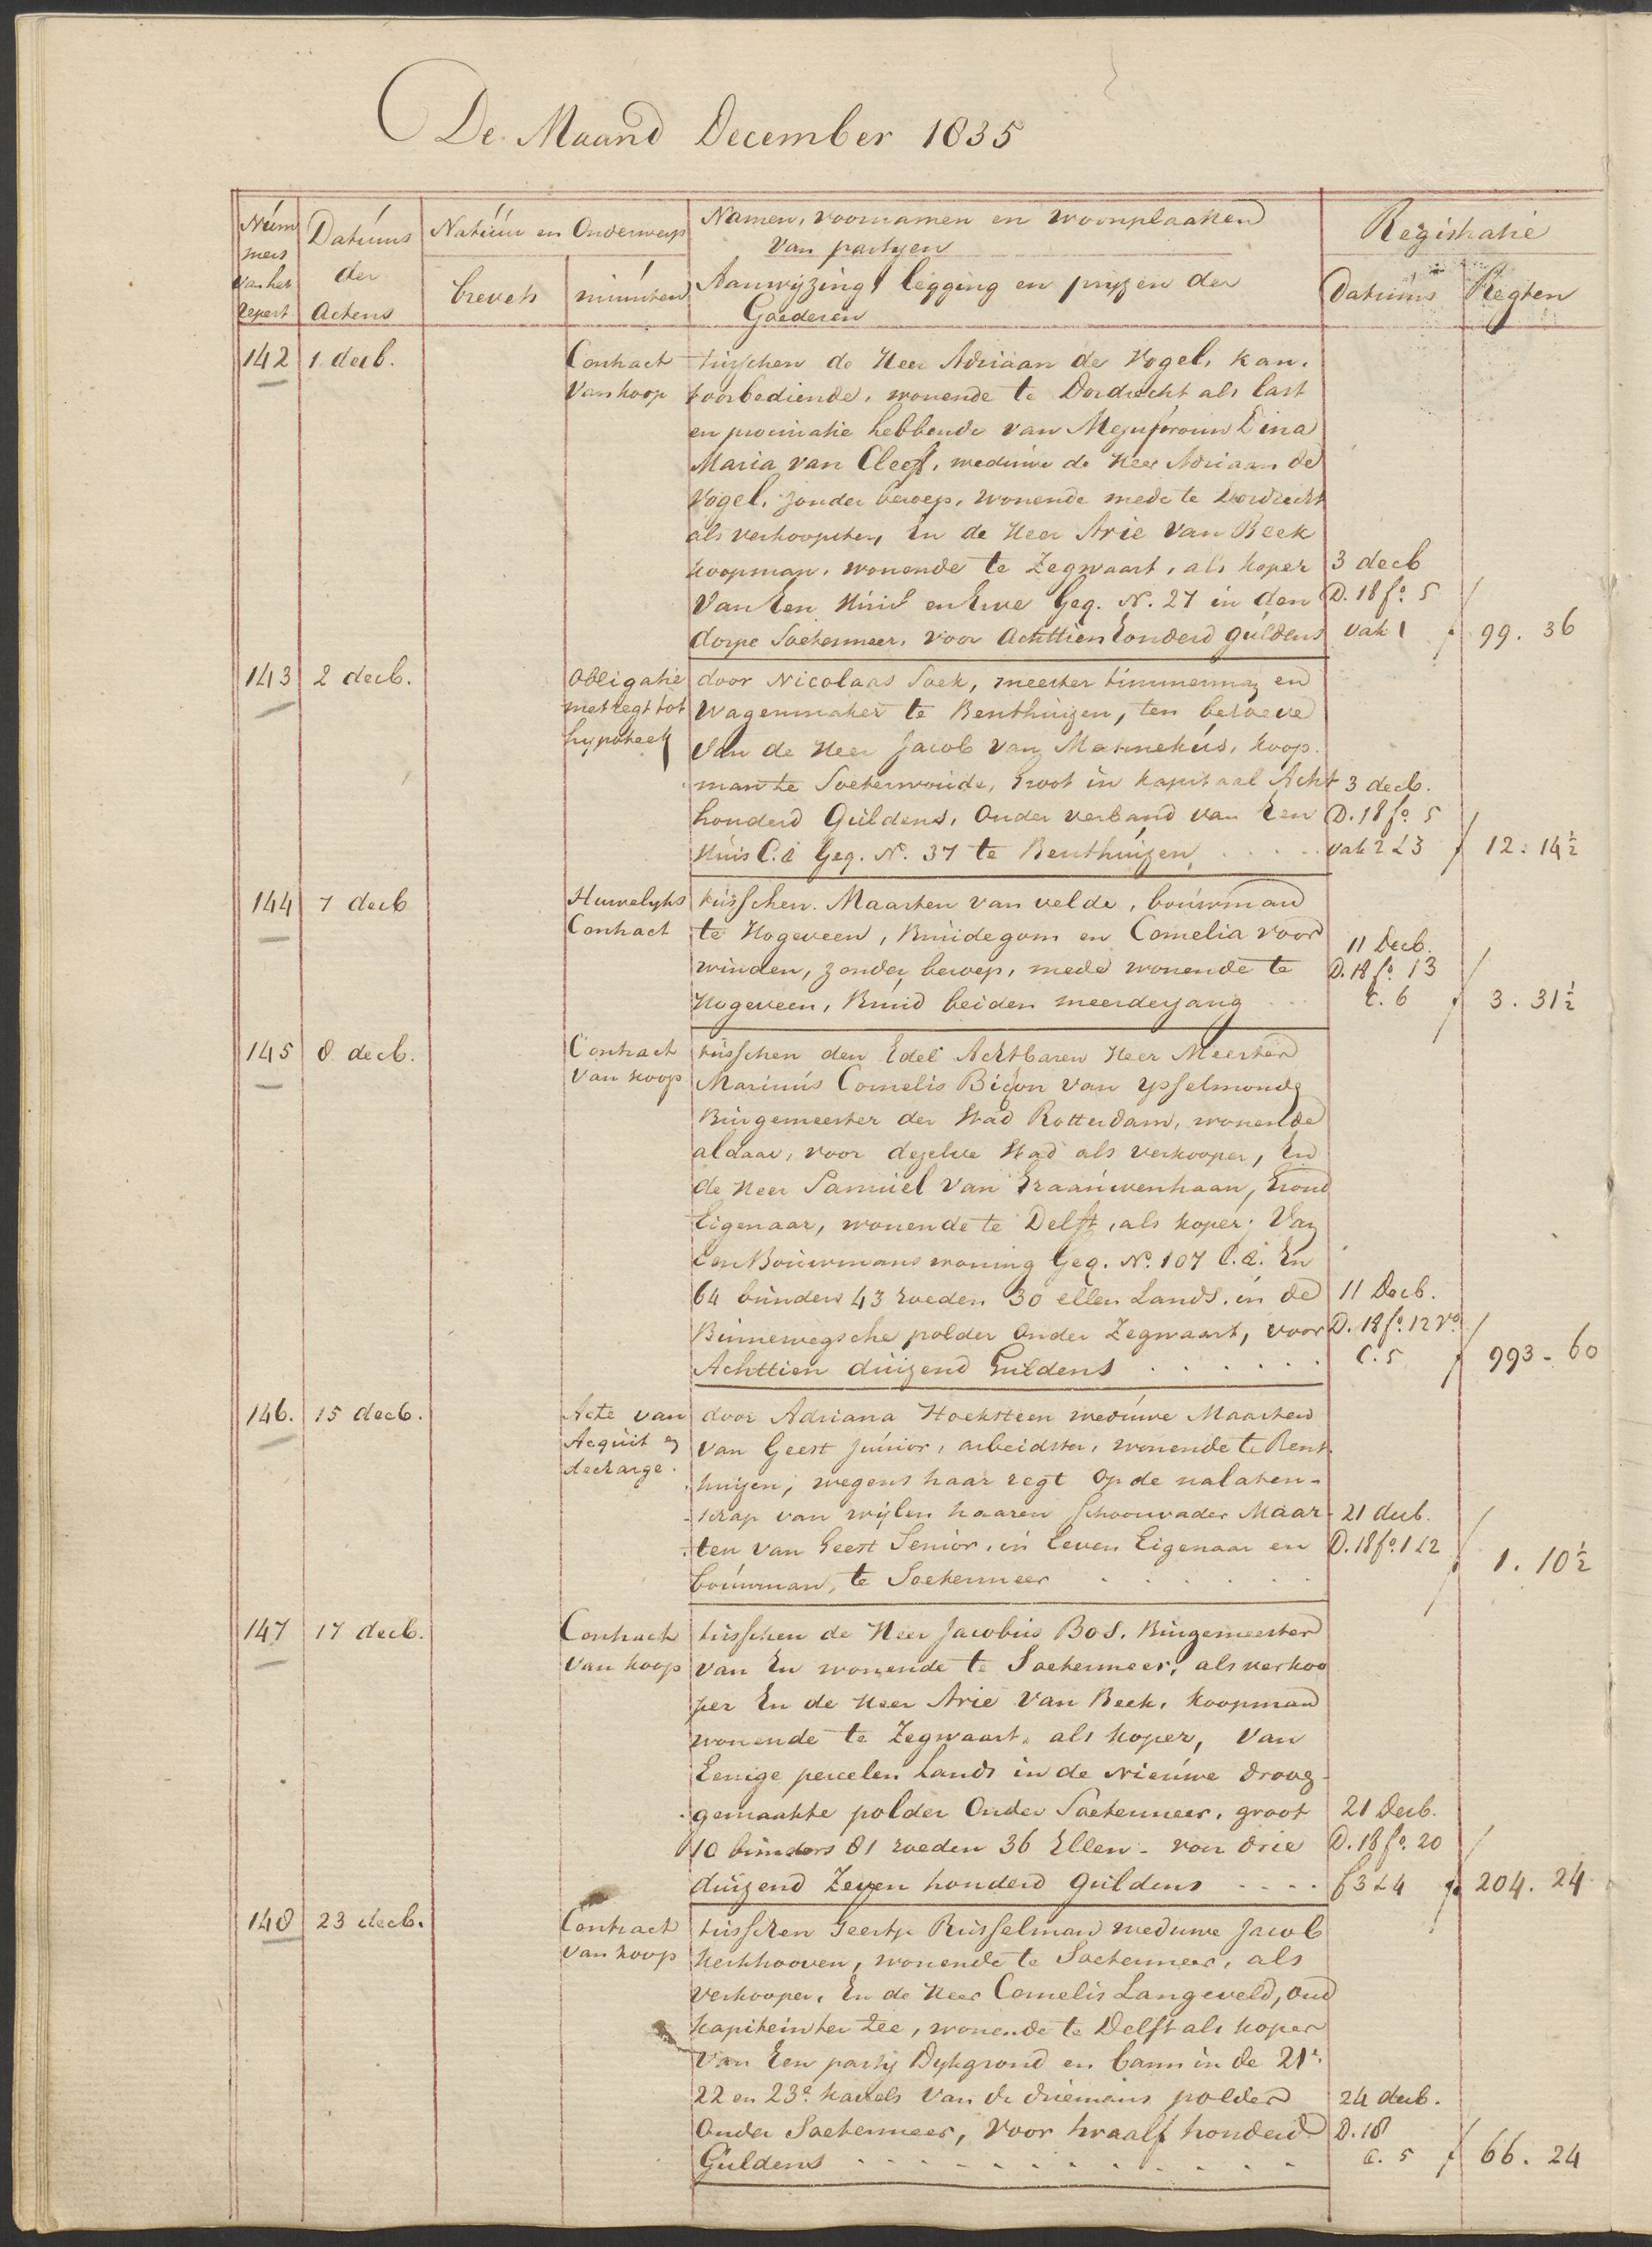 De Maand December 1835
Num
mers
van het
repert
Datums
der
Actens
Natuur en Onderwerp
brevets
minuten
Namen, voornamen en woonplaatsen
van partyen
Aanwyzing, legging en pryzen der
Goederen
Registratie
Datums
Regten
142
1 decb.
Contract
van koop
tusschen de Heer Adriaan de Vogel, kan-
toorbediende, wonende te Dordrecht als last
en procuratie hebbende van Mejufvrouw Dina
Maria van Cleeff, weduwe de Heer Adriaan de
Vogel, zonder beroep, wonende mede te Dordrecht
als verkoopster, En de Heer Arie van Beek
koopman, wonende te Zegwaart, als koper
van Een Huis en Erve Geq. N. 27 in den
dorpe Soetermeer, voor Achttien honderd guldens
3 decb
D. 18 fo. 5
vak 1
f 99. 36
143
2 decb.
Obligatie
met regt tot
hypotheek
door Nicolaas Soek, meester timmerman en
wagenmaker te Benthuizen, ten behoeve
van de Heer Jacob van Marinekus, koop-
man te Soeterwoude, Groot in kapitaal Acht
honderd Guldens, Onder verband van Een
Huis C.a Geq. N. 37 te Benthuizen
3 decb.
D. 18 fo. 5
vak 2 & 3
f 12. 14½
144
7 decb
Huwelyks
Contract
tusschen Maarten van velde, bouwman
te Hogeveen, Bruidegom en Cornelia voor
winden, zonder beroep, mede wonende te
Hogeveen, Bruid beiden meerderjarig
11 Decb.
D. 18 fo. 13
C. 6
f 3. 31½
145
8 decb.
Contract
van koop
tusschen den Edel Achtbaren Heer Meester
Marinus Cornelis Bichon van Ysselmonde
Burgemeester der Stad Rotterdam, wonende
aldaar, voor dezelve Stad als verkooper, En
de Heer Samuel van Graauwenhaan, Grond
Eigenaar, wonende te Delft, als koper; Van
Een Bouwmanswoning Geq. No. 107 C.a. En
64 bunders 43 roeden 30 ellen Lands, in de
Binnewegsche polder Onder Zegwaart, voor
Achttien duizend Guldens
11 Decb.
D. 18 fo. 12 vo.
C. 5
f 993 - 60
146.
15 decb.
Acte van
Acquit en
decharge.
door Adriana Hoeksteen weduwe Maarten
van Geest Junior, arbeidster, wonende te Bent-
huizen, wegens haar regt Op de nalaten-
schap van wijlen haaren schoonvader Maar-
ten van Geest Senior, in Leven Eigenaar en
bouwman, te Soetermeer
21 decb.
D. 18 fo. 1 & 2
f 1. 10½
147
17 decb.
Contract
van koop
tusschen de Heer Jacobus Bos, Burgemeester
van En wonende te Soetermeer, als verkoo
per En de Heer Arie van Beek, Koopman
wonende te Zegwaart, als koper, van
Eenige percelen Lands in de Nieuwe droog-
gemaakte polder Onder Soetermeer, groot
10 bunders 81 roeden 36 Ellen - voor drie
duizend Zeven honderd Guldens
21 Decb.
D. 18 fo. 20
C 3 & 4
f 204. 24
148
23 decb.
Contract
van koop
tusschen Geertje Russelman weduwe Jacob
Kerkhooven, wonende te Soetermeer, als
verkooper, En de Heer Cornelis Langeveld, oud
Kapitein ter Zee, wonende te Delft als koper
van Een party Dykgrond en in de 21e.
22 en 23e. kavels van de driemans polder
Onder Soetermeer, voor twaalf honderd
Guldens
24 decb.
D. 18
C. 5
f 66. 24